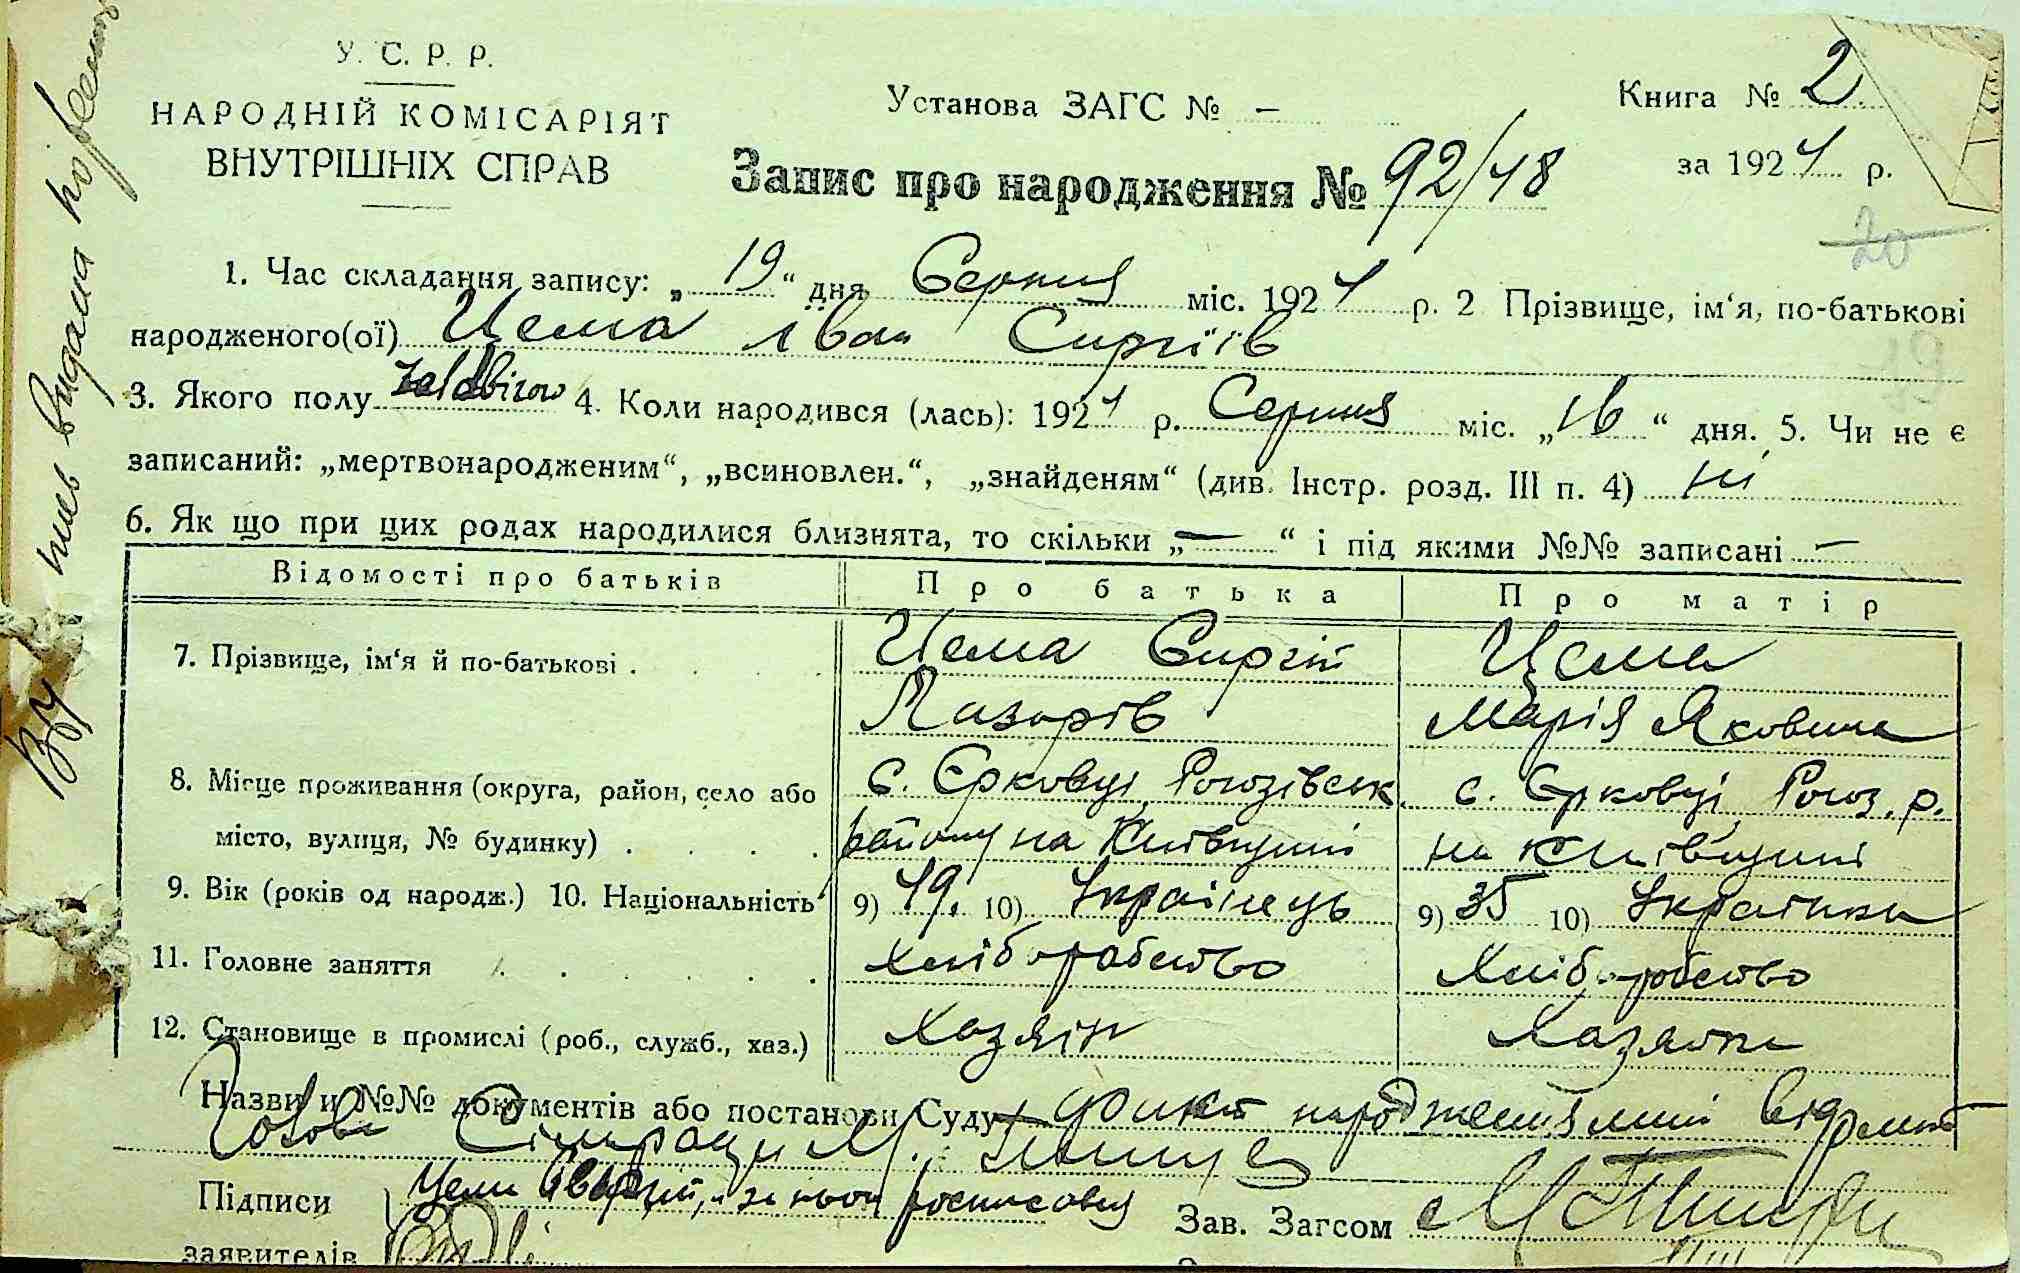 У. С. Р. Р.
НАРОДНІЙ КОМІСАРІЯТ
ВНУТРІШНІХ СПРАВ
Установа ЗАГС № —
Книга № 2
за 1924 р.
Запис про народження № 92/48
20
19
1. Час складання запису: „19“ дня Серпня міс. 1924 р. 2 Прізвище, ім‘я, по-батькові
народженого(ої) Цема Іван Сиргіїв
3. Якого полу 4. Коли народився (лась): 1924 р. Серпня міс. „16“ дня. 5. Чи не є
записаний: „мертвонародженим“, „всиновлен.“, „знайденям“ (див. Інстр. розд. III п. 4) ні
6. Як що при цих родах народилися близнята, то скільки „—“ і під якими №№ записані —
Відомості про батьків Про батька Про матір
7. Прізвище, ім‘я й по-батькові . Цема Сиргій Цема
Лазорів Марія Яковина
8. Місце проживання (округа, район, село або с. Єрковці Рогозівськ. с. Єрковці Рогоз. р.
місто, вулиця, № будинку) . району на Київщині на Київщині
9. Вік (років од народж.) 10. Національність 9) 49. 10) Українець 9) 35 10) Українка
11. Головне заняття Хліборобство Хліборобство
12. Становище в промислі (роб., служб., хаз.) Хазяїн Хазяйка
Назви и №№ документів або постанови Суду народження мені відомий
Голова
Підписи Цема росписовся
заявителів
Зав. Загсом
видана